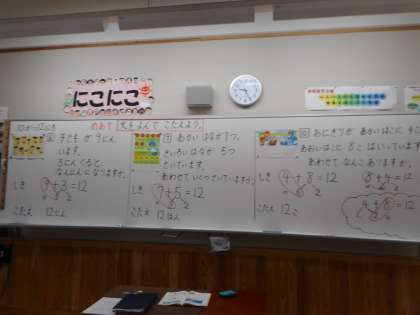 にこにこ
めあて 文をよんで こたえよう。
子どもが 9にん
います。
3にんくると、
なんにんになりますか。
しき 9+3=12
こたえ 12にん
あかい はなが 7つ、
きいろい はなが 5つ
さいています。
あわせて いくつさいていますか。
しき 7+5=12
こたえ 12ほん
おにぎりが あかい はこに 4こ
あおいはこに 8こ はいっています。
あわせて なんこ ありますか。
しき 4+8=12
こたえ 12こ
8+4=12
4+8=12